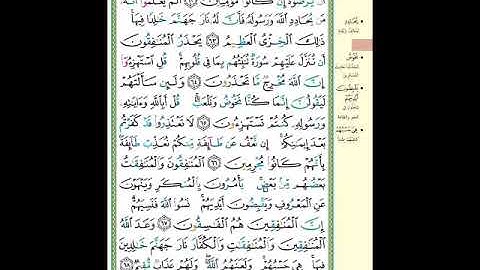 أَن يُرْضُوهُ إِن كَانُوا۟ مُؤْمِنِينَ ٦٢ أَلَمْ يَعْلَمُوٓا۟ أَنَّهُۥ
مَن يُحَادِدِ ٱللَّهَ وَرَسُولَهُۥ فَأَنَّ لَهُۥ نَارَ جَهَنَّمَ خَٰلِدًا فِيهَا ۚ
ذَٰلِكَ ٱلْخِزْىُ ٱلْعَظِيمُ ٦٣ يَحْذَرُ ٱلْمُنَٰفِقُونَ
أَن تُنَزَّلَ عَلَيْهِمْ سُورَةٌ تُنَبِّئُهُم بِمَا فِى قُلُوبِهِمْ ۚ قُلِ ٱسْتَهْزِءُوٓا۟
إِنَّ ٱللَّهَ مُخْرِجٌ مَّا تَحْذَرُونَ ٦٤ وَلَئِن سَأَلْتَهُمْ
لَيَقُولُنَّ إِنَّمَا كُنَّا نَخُوضُ وَنَلْعَبُ ۚ قُلْ أَبِٱللَّهِ وَءَايَٰتِهِۦ
وَرَسُولِهِۦ كُنتُمْ تَسْتَهْزِءُونَ ٦٥ لَا تَعْتَذِرُوا۟ قَدْ كَفَرْتُم
بَعْدَ إِيمَٰنِكُمْ ۚ إِن نَّعْفُ عَن طَآئِفَةٍ مِّنكُمْ نُعَذِّبْ طَآئِفَةًۢ
بِأَنَّهُمْ كَانُوا۟ مُجْرِمِينَ ٦٦ ٱلْمُنَٰفِقُونَ وَٱلْمُنَٰفِقَٰتُ
بَعْضُهُم مِّنۢ بَعْضٍ ۚ يَأْمُرُونَ بِٱلْمُنكَرِ وَيَنْهَوْنَ
عَنِ ٱلْمَعْرُوفِ وَيَقْبِضُونَ أَيْدِيَهُمْ ۚ نَسُوا۟ ٱللَّهَ فَنَسِيَهُمْ ۗ
إِنَّ ٱلْمُنَٰفِقِينَ هُمُ ٱلْفَٰسِقُونَ ٦٧ وَعَدَ ٱللَّهُ
ٱلْمُنَٰفِقِينَ وَٱلْمُنَٰفِقَٰتِ وَٱلْكُفَّارَ نَارَ جَهَنَّمَ خَٰلِدِينَ
فِيهَا ۚ هِىَ حَسْبُهُمْ ۚ وَلَعَنَهُمُ ٱللَّهُ ۖ وَلَهُمْ عَذَابٌ مُّقِيمٌ ٦٨
يُحَادِدِ
نَخُوضُ
يَقْبِضُونَ
أَيْدِيَهُمْ
هِىَ حَسْبُهُمْ